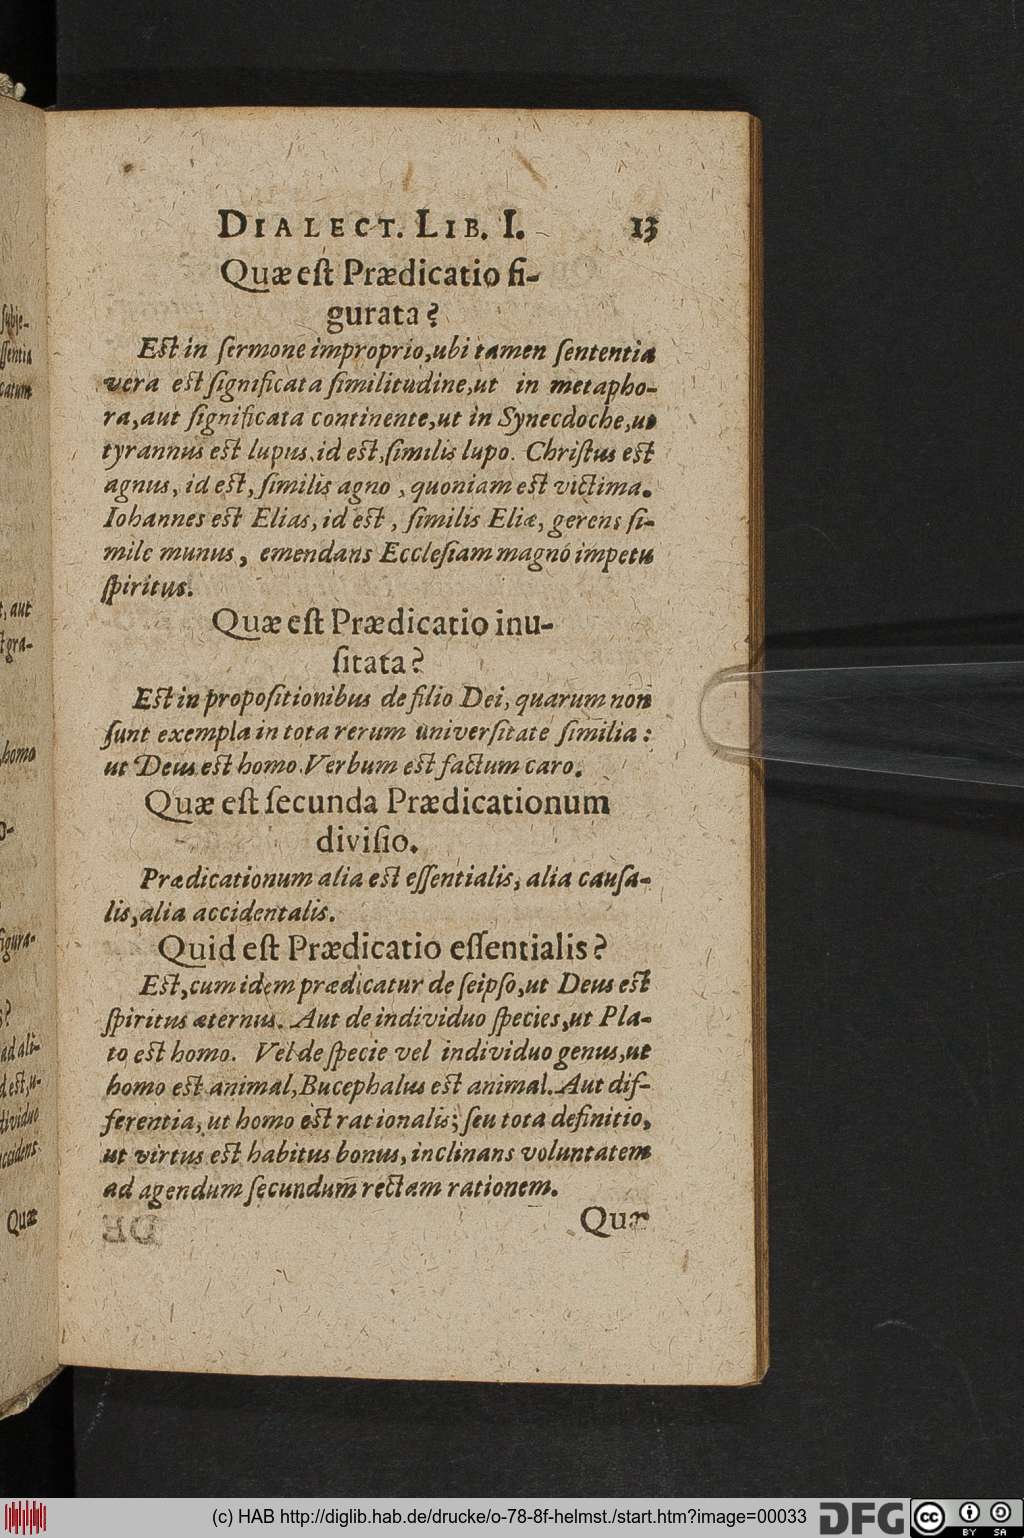 DIALECT. LIB. I. 13
Quæ eſt Prædicatio fi-
gurata?
Eſt in ſermone improprio, ubi tamen ſententia
vera eſt ſignificata ſimilitudine, ut in metapho-
ra, aut ſignificata continente, ut in Synecdoche, ut
tyrannus eſt lupus, id eſt, ſimilis lupo. Chriſtus eſt
agnus, id eſt, ſimilis agno, quoniam eſt victima.
Iohannes eſt Elias, id eſt, ſimilis Eliæ, gerens ſi-
mile munus, emendans Eccleſiam magno impetu
ſpiritus.
Quæ eſt Prædicatio inu-
ſitata?
Eſt in propoſitionibus de filio Dei, quarum non
ſunt exempla in tota rerum univerſitate ſimilia:
ut Deus eſt homo. Verbum eſt factum caro.
Quæ eſt ſecunda Prædicationum
diviſio.
Prædicationum alia eſt eſſentialis, alia cauſa-
lis, alia accidentalis.
Quid eſt Prædicatio eſſentialis?
Eſt, cum idem prædicatur de ſeipſo, ut Deus eſt
ſpiritus æternus. Aut de individuo ſpecies, ut Pla-
to eſt homo. Vel de ſpecie vel individuo genus, ut
homo eſt animal, Bucephalus eſt animal. Aut dif-
ferentia, ut homo eſt rationalis; ſeu tota definitio,
ut virtus eſt habitus bonus, inclinans voluntatem
ad agendum ſecundum rectam rationem.
Quæ
(c) HAB http://diglib.hab.de/drucke/o-78-8f-helmst./start.htm?image=00033
DFG
cc BY SA